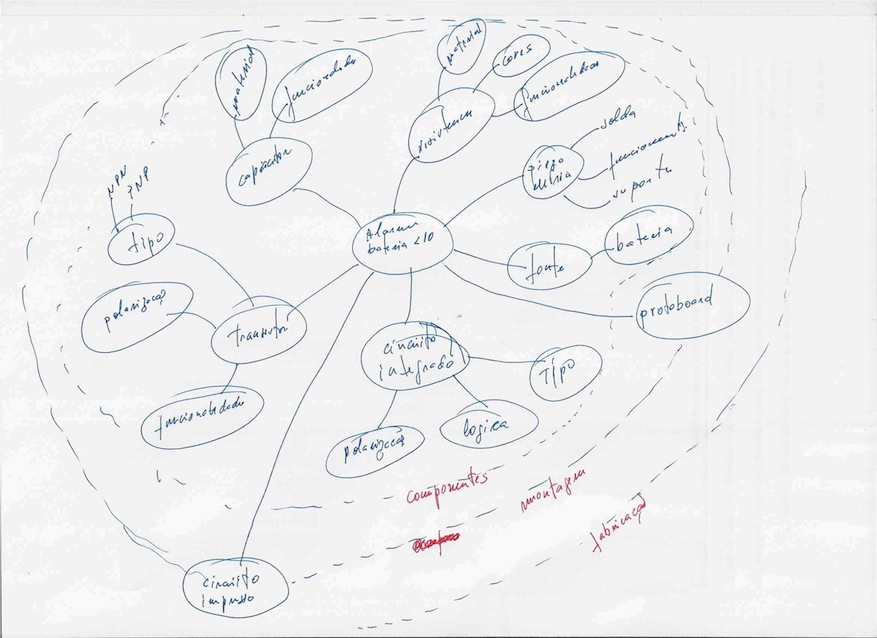 material
funcionalidade
capacitor
material
cores
funcionalidades
resistencia
solda
funcionamento
suporte
piezo
NPN
PNP
tipo
polarização
transistor
funcionalidade
Alarme
bateria <10
fonte
bateria
protoboard
circuito
integrado
Tipo
logica
polarização
componentes
montagem
fabricação
circuito
impresso